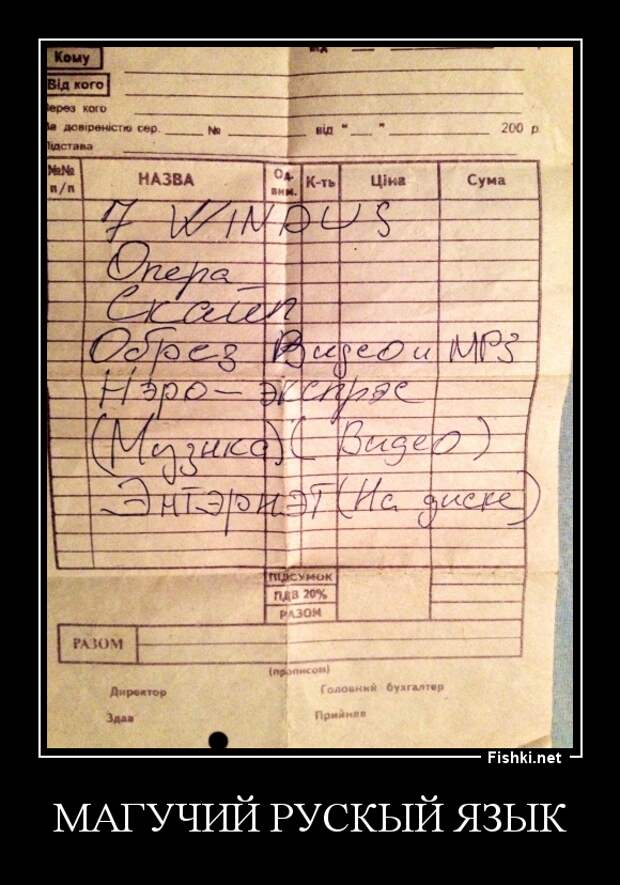 Кому
Від кого
Через кого
За довіреністю сер. ____ № ____ від "__" ____ 200 р
Підстава
№№ п/п НАЗВА Од. вим. К-ть Ціна Сума
7 WINDUS
Опера
Скайп
Обрез Видео и MP3
Нэро-экспрэс
(Музика) (Видео)
Энтэрнэт (На диске)
ПІДСУМОК
ПДВ 20%
РАЗОМ
РАЗОМ
(прописом)
Директор Головний бухгалтер
Здав Прийняв
Fishki.net
МАГУЧИЙ РУСКЫЙ ЯЗЫК